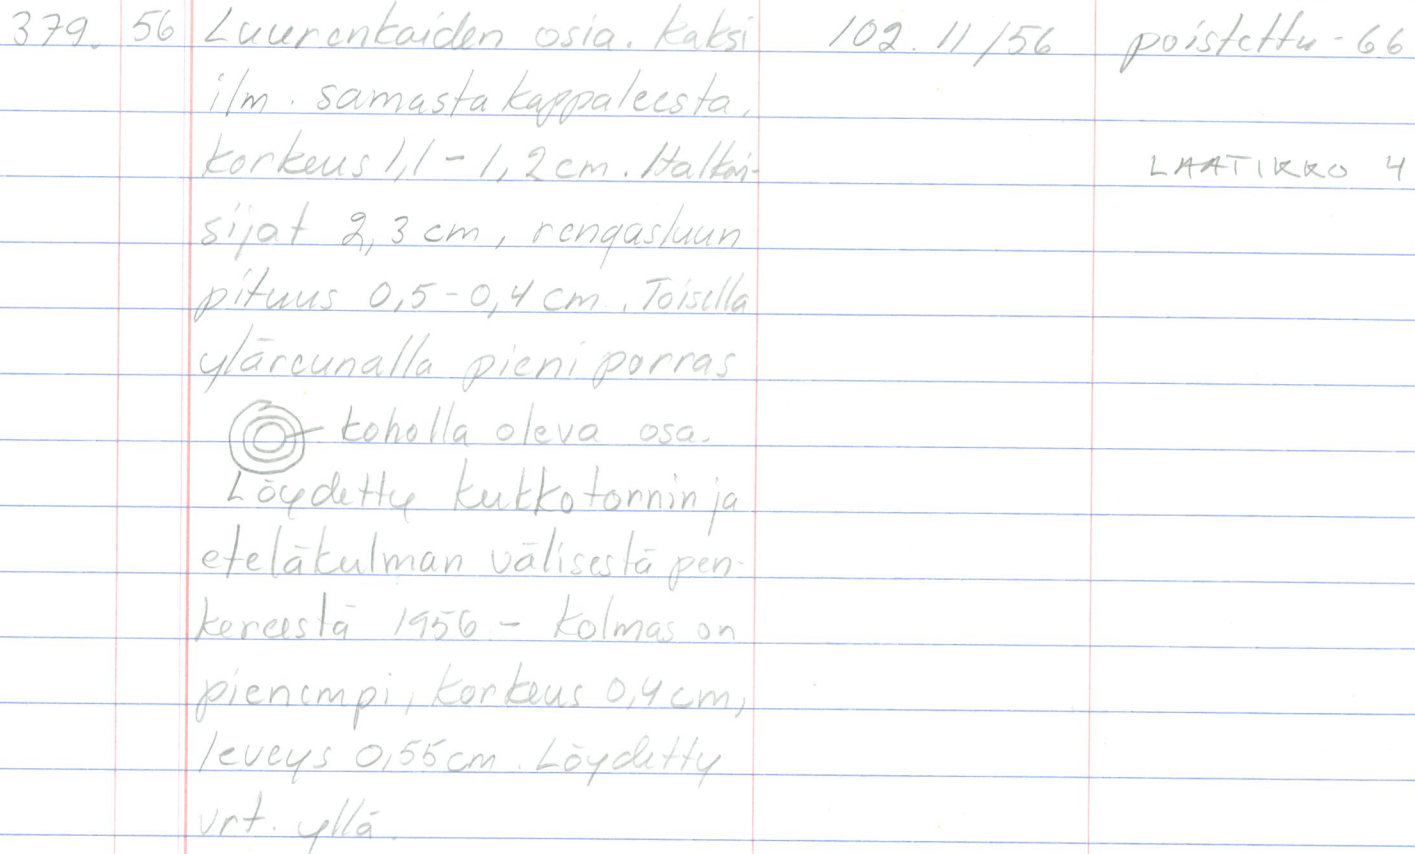 379. 56 Luurenkaiden osia. Kaksi 102. 11/56 poistettu - 66
ilm. samasta kappaleesta.
korkeus 1,1 - 1,2 cm. Halkai- LAATIKKO 4
sijat 2,3 cm, rengasluun
pituus 0,5 - 0,4 cm. Toisella
yläreunalla pieni porras
koholla oleva osa.
Löydetty kukkotornin ja
eteläkulman välisestä pen-
kereestä 1956 - Kolmas on
pienempi, korkeus 0,4 cm,
leveys 0,55 cm. Löydetty
vrt. yllä.